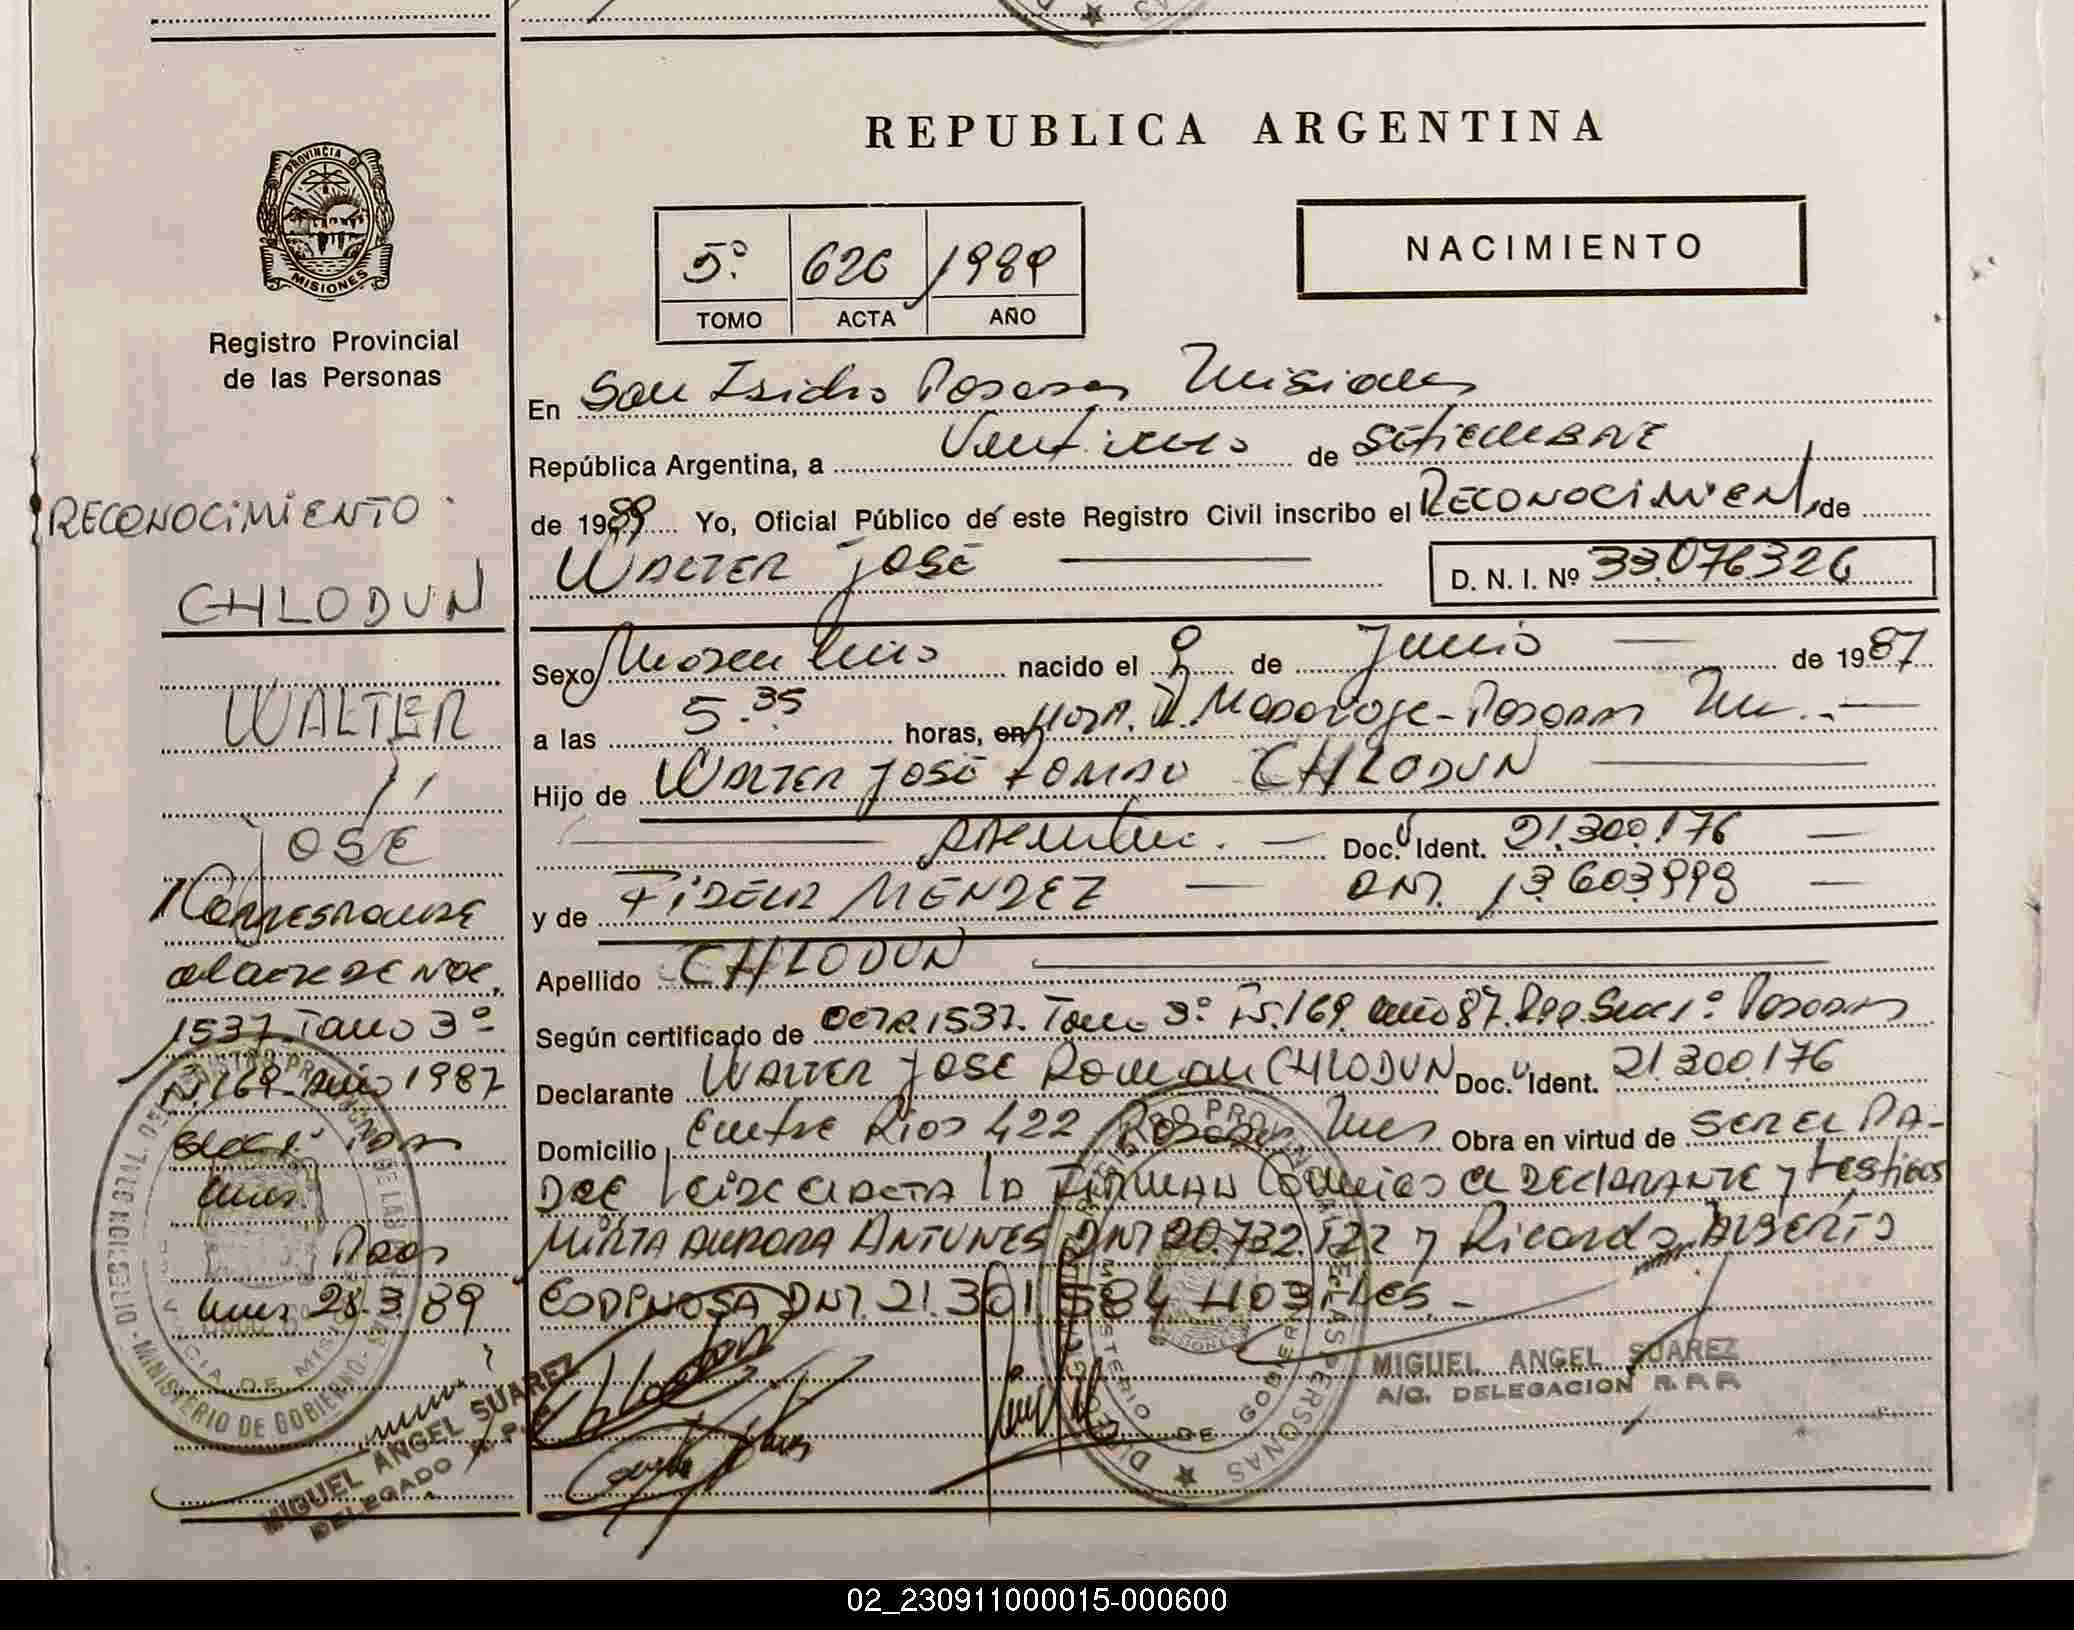 REPUBLICA ARGENTINA
PROVINCIA DE
MISIONES
Registro Provincial
de las Personas
5º 626 1989
TOMO ACTA AÑO
NACIMIENTO
En San Isidro Posadas Misiones
República Argentina, a de SETIEMBRE
de 1989 Yo, Oficial Público de este Registro Civil inscribo el RECONOCIMIENT de
WALTER JOSÉ D. N. I. Nº 33.076326
Sexo Masculino nacido el 9 de Junio de 1987
a las 5.35 horas, en Hosp. Posadas
Hijo de WALTER JOSÉ CHLODUN
Argentino. Doc. Ident. 21.300.176
y de MENDEZ DNI. 13.603.998
Apellido CHLODUN
Según certificado de acta 1537. Tomo 3º Fs. 169. año 87. Sec 1º Posadas
Declarante WALTER JOSE Roman CHLODUN Doc. Ident. 21.300.176
Domicilio Entre Rios 422 Posadas Mnes Obra en virtud de SER EL PA-
DRE Leide el ACTA LA FIRMAN Conmigo el DECLARANTE y testigos
MIRTA AURORA ANTUNES DNI 20.732. y Ricardo ALBERTO
ESPINOSA DNI. 21.301.584 HÁBILES.-
MIGUEL ANGEL SUAREZ
A/C. DELEGACION R. P. P.
RECONOCIMIENTO
CHLODUN
WALTER
JOSÉ
Corresponde
al acta de NAC.
1537. Tomo 3º
Fs. 169 - año 1987
Secc 1º Pdas
Mnes.
Pdas
Mnes 28.3.89
MIGUEL ANGEL SUAREZ
DELEGADO R. P.
MINISTERIO DE GOBIERNO
02_230911000015-000600